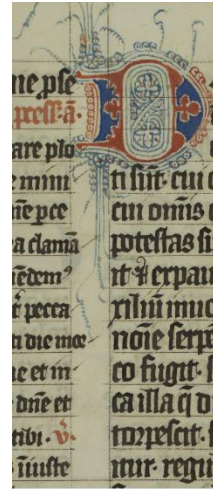 ne pse
press. a.
are plo
e mini
ne pce
a clamā
iēdem⁹
t pecca
n die mee
ne et m
dn̄e et
tibi. v.
iniuste
D
ti sūt. cui o
cui omnis
potestas si
it. ⁊ expau
xiliū muc
noīe serpē
co fugit. s
ca illa q̄ d
torpescit. s
itur. regu